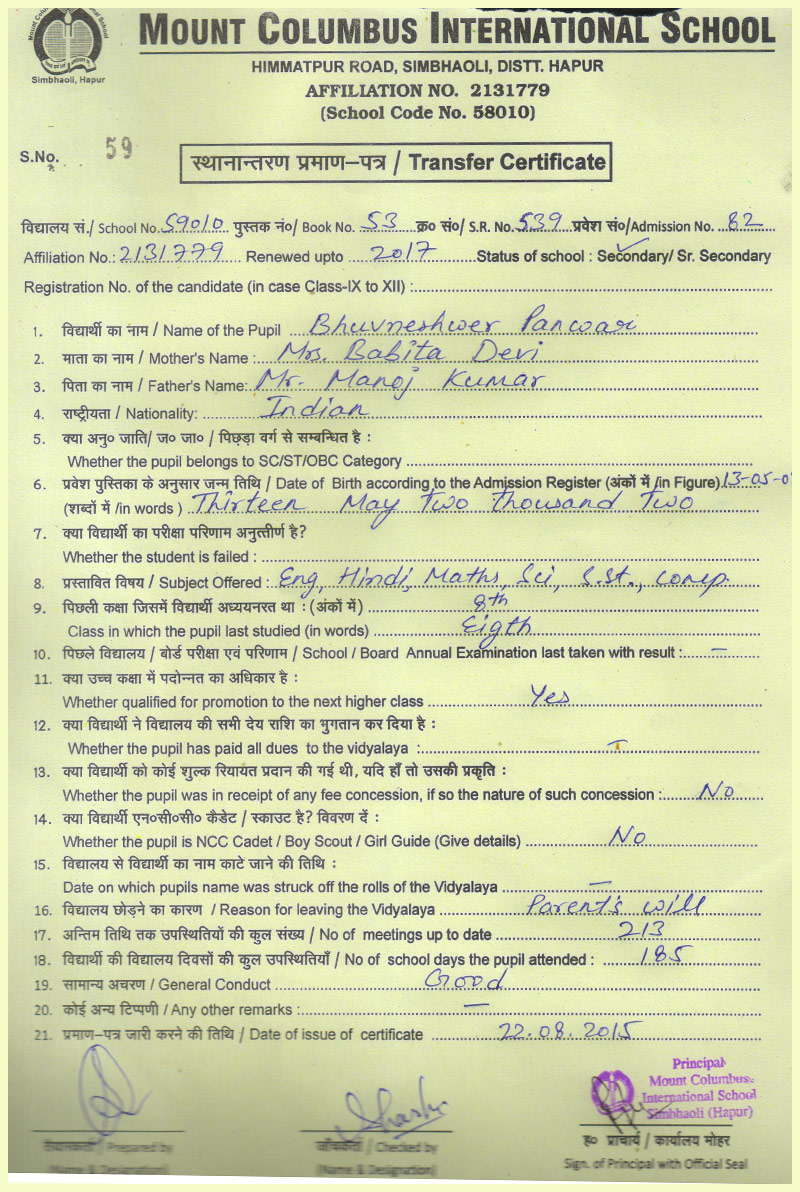 MOUNT COLUMBUS INTERNATIONAL SCHOOL
Simbhaoli, Hapur
HIMMATPUR ROAD, SIMBHAOLI, DISTT. HAPUR
AFFILIATION NO. 2131779
(School Code No. 58010)
S.No. 59
स्थानान्तरण प्रमाण–पत्र / Transfer Certificate
विद्यालय सं./ School No. 59010 पुस्तक नं०/ Book No. 53 क्र० सं०/ S.R. No. 539 प्रवेश सं०/Admission No. 82
Affiliation No.: 2131779 Renewed upto 2017 Status of school : Secondary/ Sr. Secondary
Registration No. of the candidate (in case Class-IX to XII) :
1. विद्यार्थी का नाम / Name of the Pupil Bhuvneshwer Panwar
2. माता का नाम / Mother's Name : Mrs. Babita Devi
3. पिता का नाम / Father's Name: Mr. Manoj Kumar
4. राष्ट्रीयता / Nationality: Indian
5. क्या अनु० जाति/ ज० जा० / पिछड़ा वर्ग से सम्बन्धित है :
Whether the pupil belongs to SC/ST/OBC Category
6. प्रवेश पुस्तिका के अनुसार जन्म तिथि / Date of Birth according to the Admission Register (अंकों में /in Figure) 13-05-0
(शब्दों में /in words ) Thirteen May Two thousand Two
7. क्या विद्यार्थी का परीक्षा परिणाम अनुत्तीर्ण है?
Whether the student is failed :
8. प्रस्तावित विषय / Subject Offered : Eng, Hindi, Maths, Sci, S.st., comp.
9. पिछली कक्षा जिसमें विद्यार्थी अध्ययनरत था : (अंकों में ) 8th
Class in which the pupil last studied (in words) Eigth
10. पिछले विद्यालय / बोर्ड परीक्षा एवं परिणाम / School / Board Annual Examination last taken with result : –
11. क्या उच्च कक्षा में पदोन्नत का अधिकार है :
Whether qualified for promotion to the next higher class Yes
12. क्या विद्यार्थी ने विद्यालय की सभी देय राशि का भुगतान कर दिया है :
Whether the pupil has paid all dues to the vidyalaya :
13. क्या विद्यार्थी को कोई शुल्क रियायत प्रदान की गई थी, यदि हाँ तो उसकी प्रकृति :
Whether the pupil was in receipt of any fee concession, if so the nature of such concession : No
14. क्या विद्यार्थी एन०सी०सी० कैडेट / स्काउट है? विवरण दें :
Whether the pupil is NCC Cadet / Boy Scout / Girl Guide (Give details) No
15. विद्यालय से विद्यार्थी का नाम काटे जाने की तिथि :
Date on which pupils name was struck off the rolls of the Vidyalaya –
16. विद्यालय छोड़ने का कारण / Reason for leaving the Vidyalaya Parent's will
17. अन्तिम तिथि तक उपस्थितियों की कुल संख्य / No of meetings up to date 213
18. विद्यार्थी की विद्यालय दिवसों की कुल उपस्थितियाँ / No of school days the pupil attended : 185
19. सामान्य अचरण / General Conduct Good
20. कोई अन्य टिप्पणी / Any other remarks : –
21. प्रमाण–पत्र जारी करने की तिथि / Date of issue of certificate 22.08.2015
Principal
Mount Columbus
International School
Simbhaoli (Hapur)
Prepared by
(Name & Designation)
जाँचकर्ता / Checked by
(Name & Designation)
ह० प्राचार्य / कार्यालय मोहर
Sign. of Principal with Official Seal